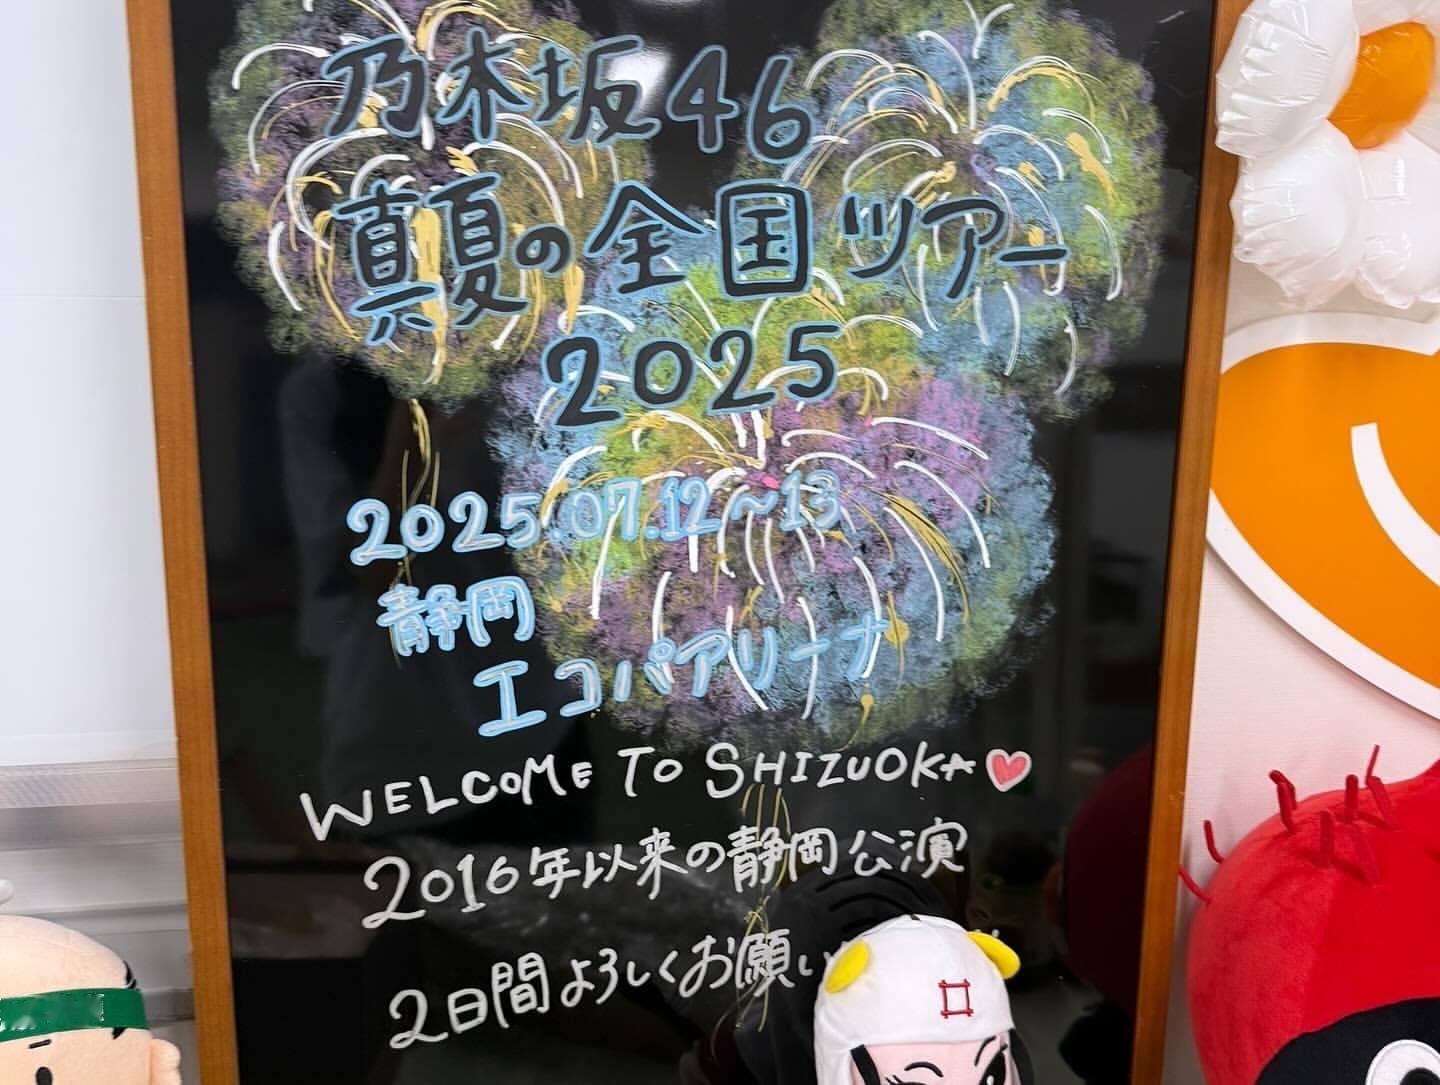 乃木坂46
真夏の全国ツアー
2025
2025.07.12~13
静岡
エコパアリーナ
WELCOME TO SHIZUOKA
2016年以来の静岡公演
2日間よろしくお願い